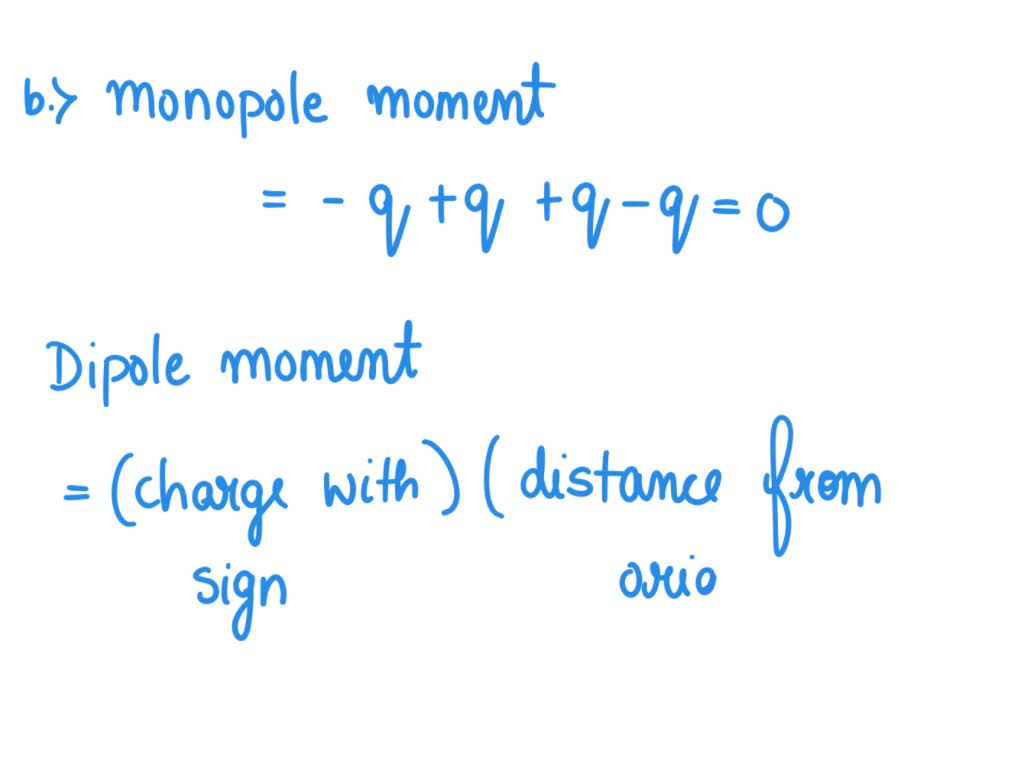 b.> monopole moment
= - q + q + q - q = 0
Dipole moment
= (charge with) (distance from
sign